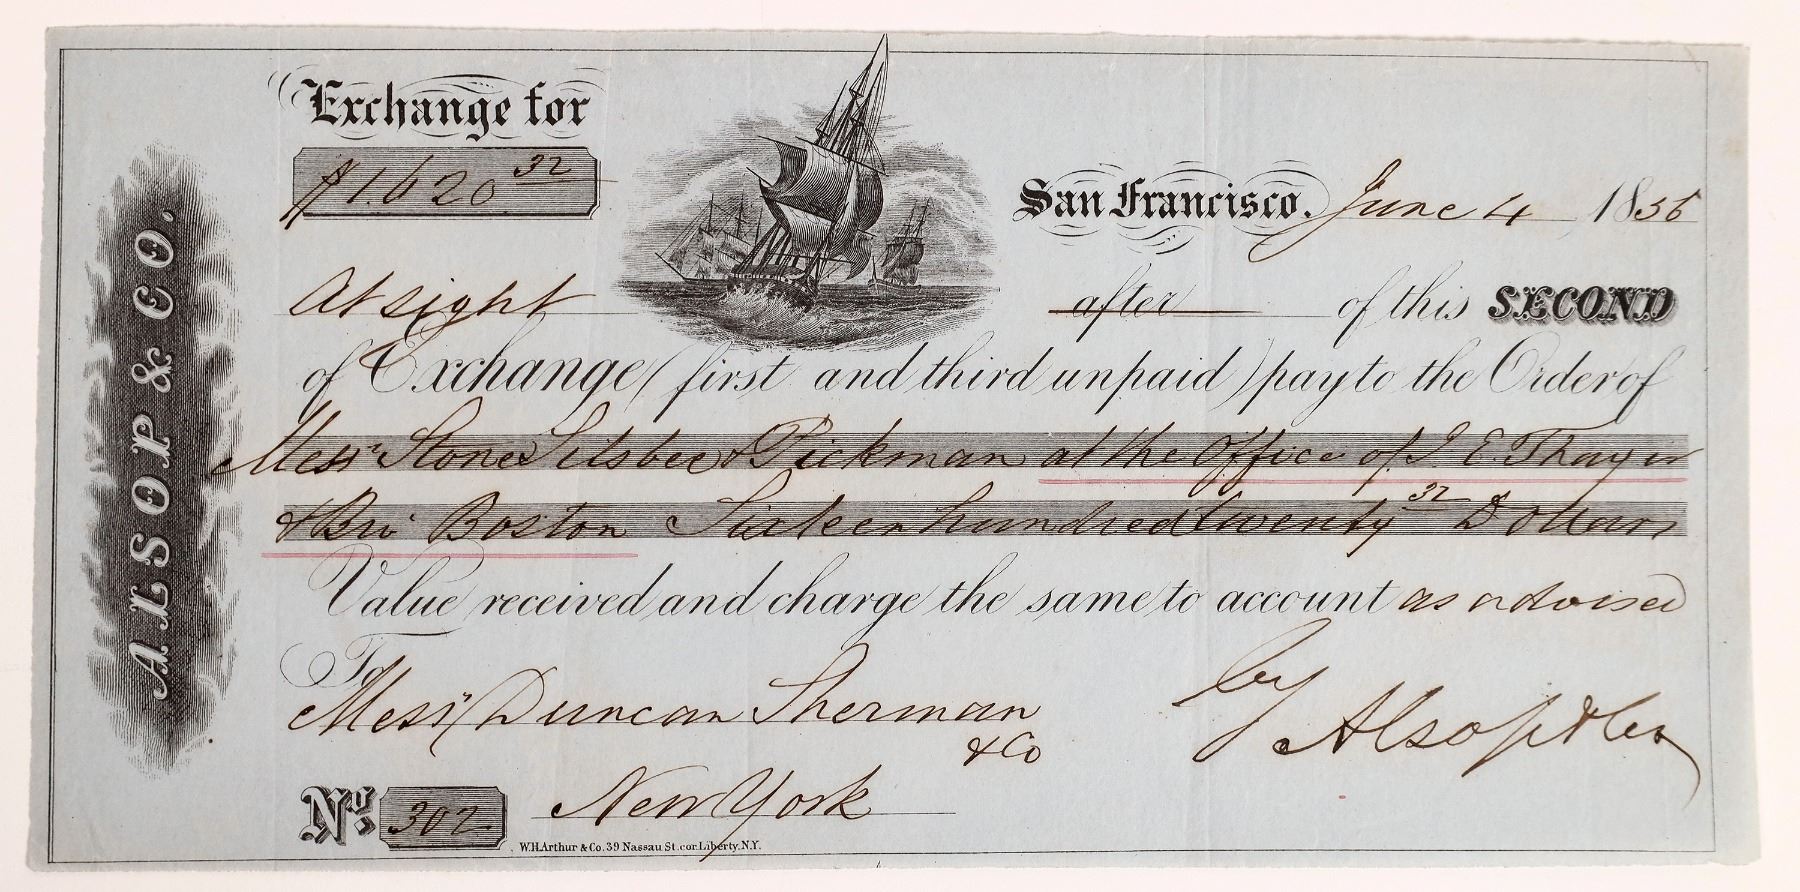 Exchange for
$1.620 32
San Francisco. June 4 1856
At sight after of this SECOND
of Exchange (first and third unpaid) pay to the Order of
Messrs Stone Silsbee & Pickman at the Office of J. E. Thayer
& Bro Boston Sixteen hundred twenty 32 Dollars
Value received and charge the same to account as advised
To
Messrs Duncan Sherman
& Co
by Alsop & Co
New York
No. 302
W.H. Arthur & Co. 39 Nassau St. cor. Liberty. N.Y.
ALSOP & CO.